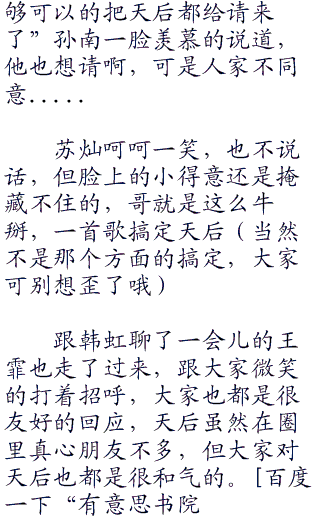 够可以的把天后都给请来
了”孙南一脸羡慕的说道，
他也想请啊，可是人家不同
意.....
苏灿呵呵一笑，也不说
话，但脸上的小得意还是掩
藏不住的，哥就是这么牛
掰，一首歌搞定天后（当然
不是那个方面的搞定，大家
可别想歪了哦）
跟韩虹聊了一会儿的王
霏也走了过来，跟大家微笑
的打着招呼，大家也都是很
友好的回应，天后虽然在圈
里真心朋友不多，但大家对
天后也都是很和气的。[百度
一下“有意思书院